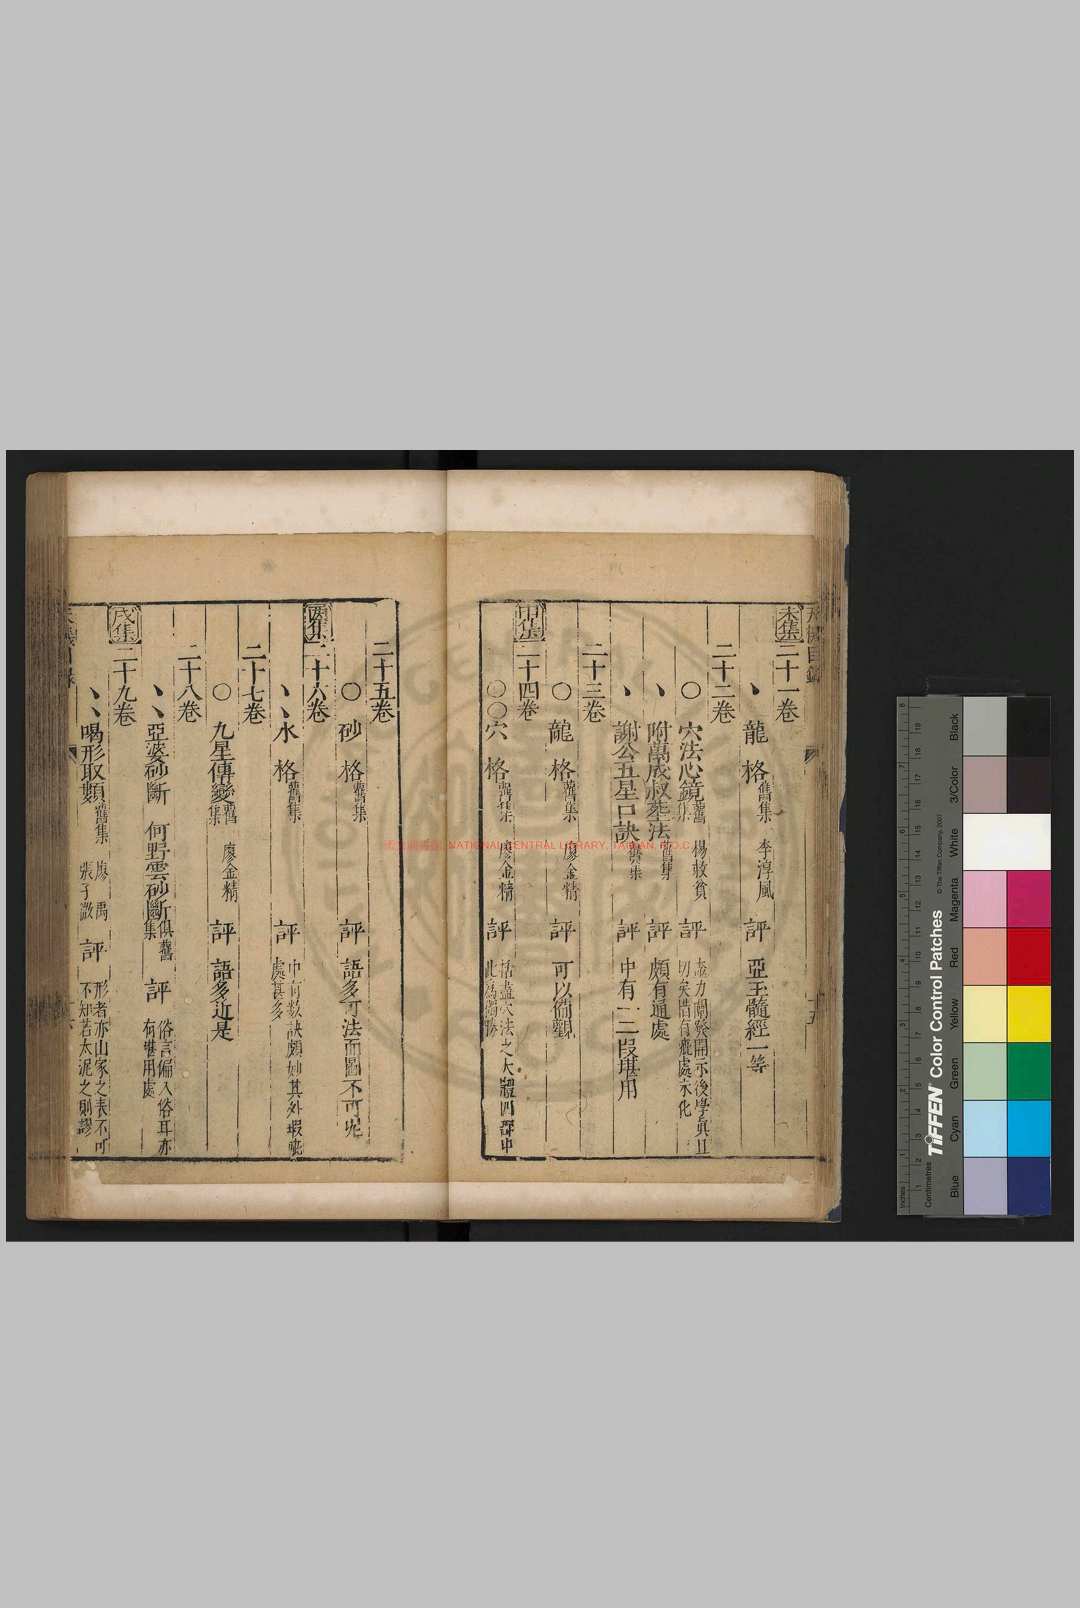 未集
二十一卷
龍格舊集 李淳風 評 亞玉髓經一等
二十二卷
〇穴法心鏡舊集 楊救貧 評 盡力闡發開示後學眞且切矣惜有疵處未化
附萬成叔塟法舊集 評 頗有通處
謝公五星口訣舊集 評 中有一二段堪用
二十三卷
〇龍格舊集 廖金精 評 可以備觀
申集
二十四卷
〇〇穴格舊集 廖金精 評 括盡穴法之大體四課中此爲獨勝
二十五卷
〇砂格舊集 評 語多可法而圖不可泥
酉集
二十六卷
水格舊集 評 中有数訣頗妙其外瑕疵處甚多
二十七卷
〇九星傳變舊集 廖金精 評 語多近是
二十八卷
亞婆砂斷 何野雲砂斷俱舊集 評 俗言偏入俗耳亦有堪用處
戌集
二十九卷
喝形取類舊集 廖禹 張子微 評 形者亦山家之表不可不知若太泥之則謬
NATIONAL CENTRAL LIBRARY, TAIWAN, R.O.C.
TIFFEN Color Control Patches
© The Tiffen Company, 2007
Inches
Centimetres
Blue
Cyan
Green
Yellow
Red
Magenta
White
3/Color
Black